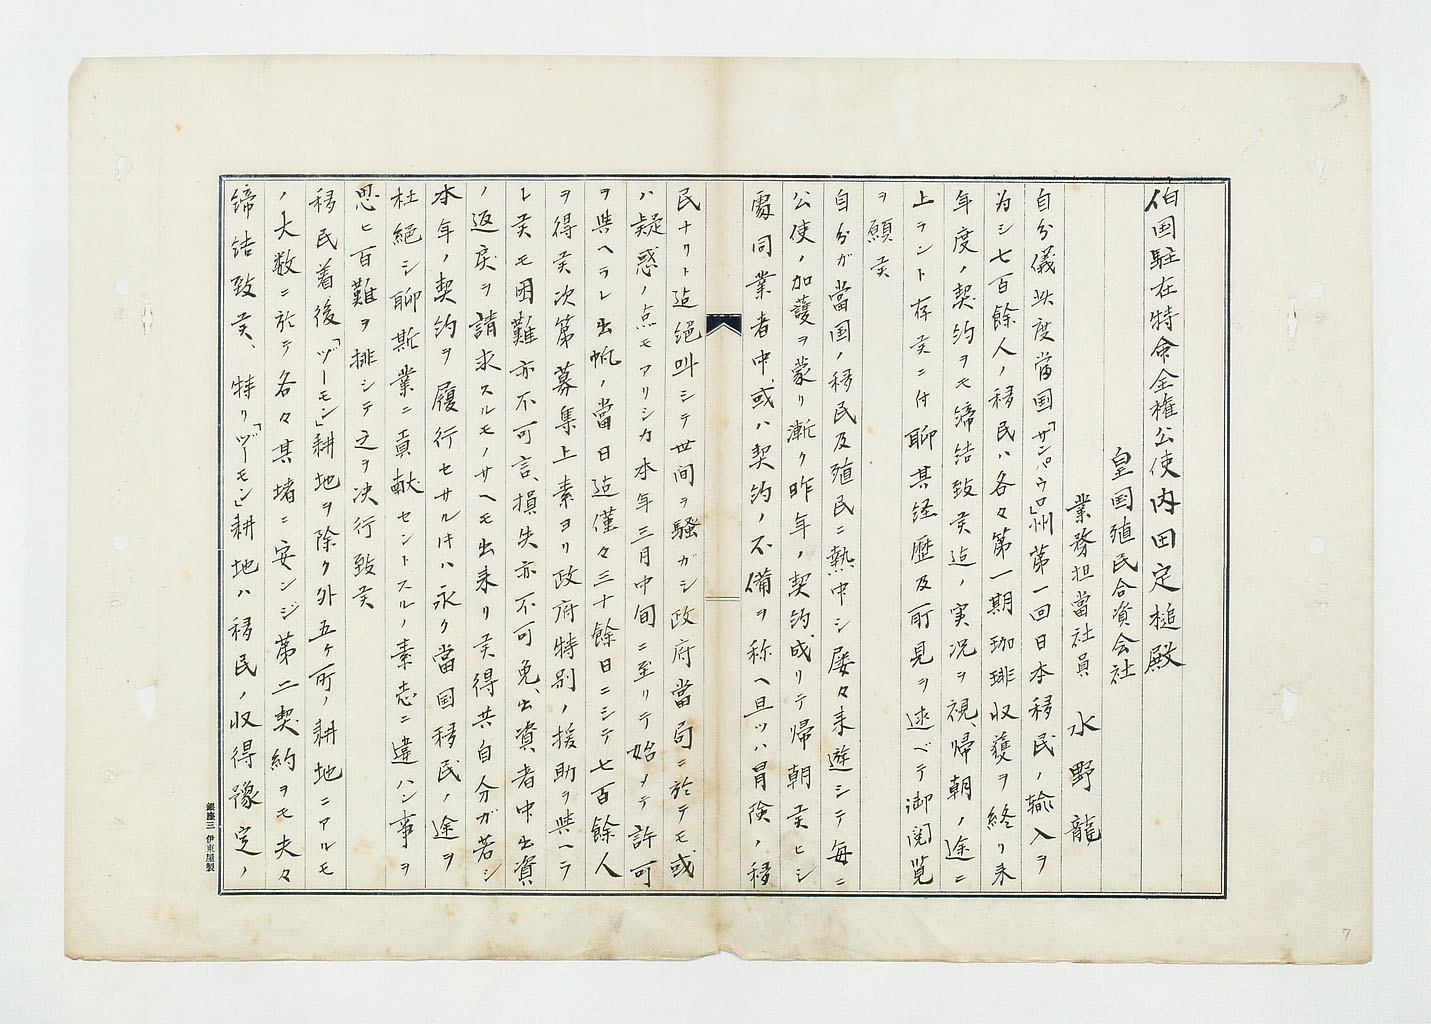 伯国駐在特命全権公使内田定槌殿
皇国殖民合資会社
業務担当社員 水野龍
自分儀此度當国「サンパウロ」州第一回日本移民ノ輸入ヲ
為シ七百餘人ノ移民ハ各々第一期珈琲収獲ヲ終リ来
年度ノ契約ヲモ締結致候迠ノ実況ヲ視、帰朝ノ途ニ
上ラント存候ニ付聊其経歴及所見ヲ述ベテ御閲覧
ヲ願候
自分ガ當国ノ移民及殖民ニ熱中シ屡々来遊シテ毎ニ
公使ノ加護ヲ蒙リ漸ク昨年ノ契約成リテ帰朝候ヒシ
處同業者中、或ハ契約ノ不備ヲ称ヘ且ツハ冒険ノ移
民ナリト迠絶叫シテ世间ヲ騒ガシ政府當局ニ於テモ或
ハ疑惑ノ点モアリシカ本年三月中旬ニ至リテ始メテ許可
ヲ與ヘラレ出帆ノ當日迠僅々三十餘日ニシテ七百餘人
ヲ得候次第募集上素ヨリ政府特別ノ援助ヲ與ヘテ
レ候モ困難亦不可言、損失亦不可免、出資者中出資
ノ返戻ヲ請求スルモノサヘモ出来リ候得共自分ガ若シ
本年ノ契約ヲ履行セサルキハ永ク當国移民ノ途ヲ
杜絶シ聊斯業ニ貢献セントスルノ素志ニ違ハン事ヲ
思ヒ百難ヲ排シテ之ヲ决行致候
移民着後「ヅーモン」耕地ヲ除ク外五ヶ所ノ耕地ニアルモ
ノ大数ニ於テ各々其堵ニ安ンジ第二契約ヲモ夫々
締結致候、特リ「ヅーモン」耕地ハ移民ノ収得豫定ノ
銀座三 伊東屋製
7